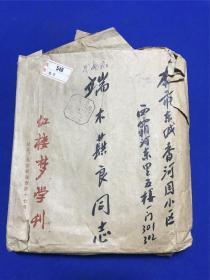 本市东城香河园小区
西霸河东里五楼一门301
302
端木蕻良同志
红楼梦学刊
548